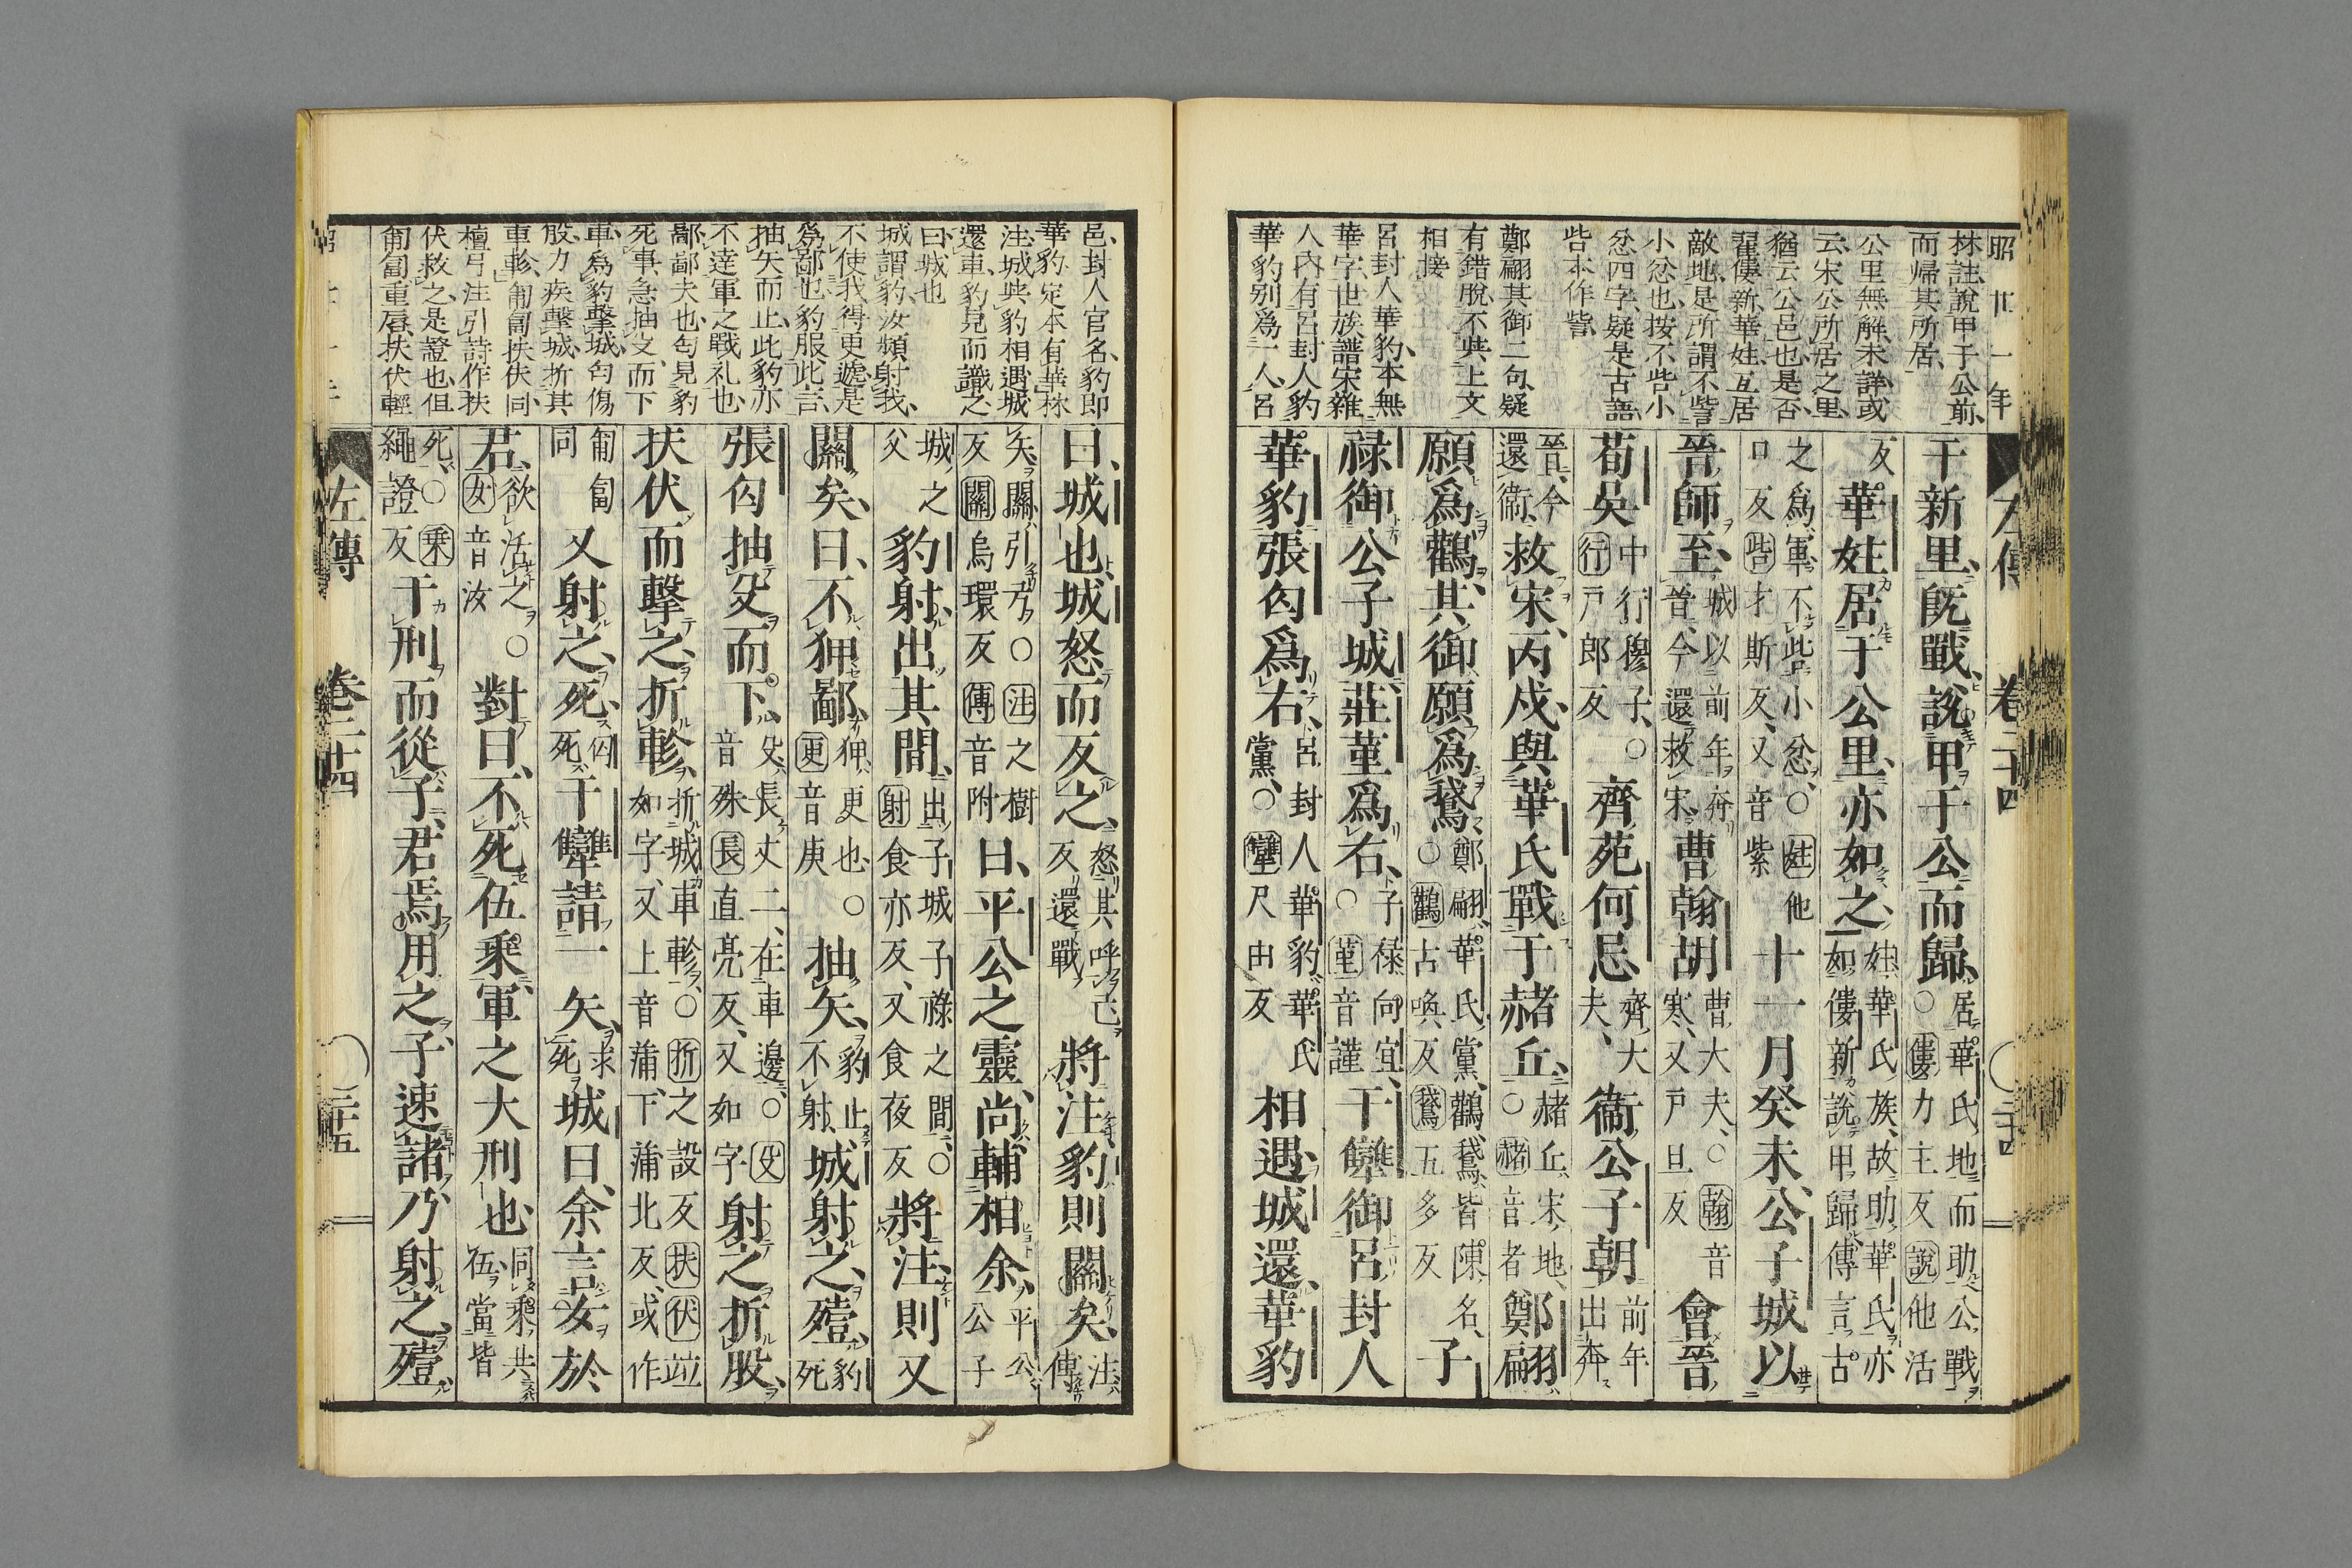 昭廿一年
林註、說甲于公前、
而帰其所居、
公里無解、未詳、或
云、宋公所居之里、
猶云公邑也、是否
翟僂新、華妵、互居
敵地、是所謂不呰
小忿也、按不呰小
忿四字、疑是古語、
呰本作訾、
鄭翩其御二句、疑
有錯脫、不與上文
相接
呂封人華豹、本無
華字、世族譜宋雜
人內有呂封人豹
華豹别爲一人、呂
左傳 卷二十四 二十四
于新里、旣戰、說甲于公而歸、居華氏地而助公戰
○僂力主反說他活
反華妵居于公里、亦如之、妵華氏族、故助華氏亦
如僂新說甲歸、傳言古
之爲軍、不呰小忿、○妵他
口反呰才斯反、又音紫十一月癸未、公子城以
晉師至、城以前年奔
晉、今還救宋曹翰胡曹大夫、○翰音
寒、又戸旦反會晉
荀吳中行穆子、○
行戸郎反齊苑何忌齊大
夫、衞公子朝前年
出奔
晉、今
還衞、救宋、丙戌、與華氏戰于赭丘、赭丘、宋地、
○赭音者鄭翩
願爲鸛、其御願爲鵝、鄭翩、華氏黨、鸛鵝皆陳名、
○鸛古喚反鵝五多反子
祿御公子城、莊堇爲右、子祿向宜、
○堇音謹干犨御呂封人
華豹、張匄爲右、呂封人華豹、華氏
黨、○犨尺由反相遇、城還、華豹
邑、封人官名、豹即
華豹、定本有華、林
注、城與豹相遇、城
還車、豹見而識之
曰、城也
城謂豹、汝頻射我、
不使我得更遞、是
爲鄙也、豹服此言、
抽矢而止、此豹亦
不達軍之戰礼也
鄙、鄙夫也、匄見豹
死、事急抽殳、而下
車、爲豹擊城、匄傷
股、力疾擊城、折其
車軫、匍匐扶伏同、
檀弓注引詩作扶
伏救之、是證也、但
匍匐重唇、扶伏輕
曰、城也、城怒而反之、怒其呼己
反還戰將注、豹則關矣、注傅
矢、關引弓、○注之樹
反關烏環反傅音附曰、平公之靈、尚輔相余、平公
公子
城之
父豹射、出其間、出子城子祿之間、○
射食亦反、又食夜反將注、則又
關矣、曰、不狎、鄙、狎更也、○
更音庚抽矢、豹止
不射、城射之、殪、豹
死
張匄抽殳而下、殳長丈二、在車邊、○殳
音殊長直亮反、又如字射之、折股、
扶伏而擊之、折軫、折城車軫、○折之設反扶伏竝
如字、又上音蒲、下蒲北反、或作
匍匐
同又射之、死、匄
死干犨請一矢、求
死城曰、余言女於
君、欲活之、○
女音汝對曰、不死伍乘、軍之大刑也、同乘共
伍、當皆
死、○乘
繩證反干刑而從子、君焉用之、子速諸、乃射之、殪
左傳 卷二十四 二十五